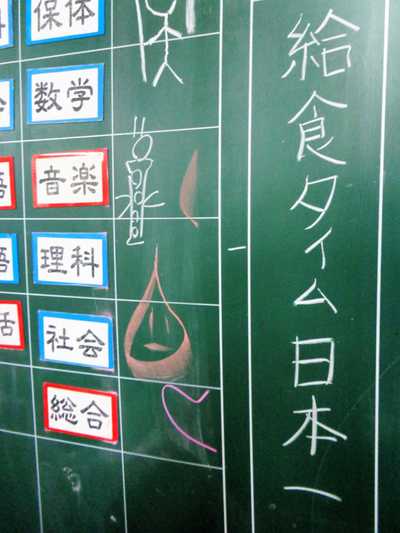 給食タイム日本一
保体
数学
音楽
理科
社会
総合